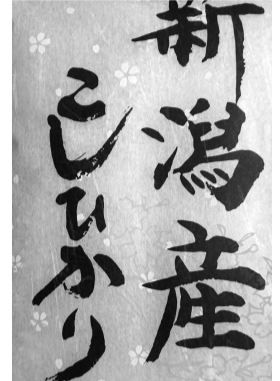 新潟産
こしひかり